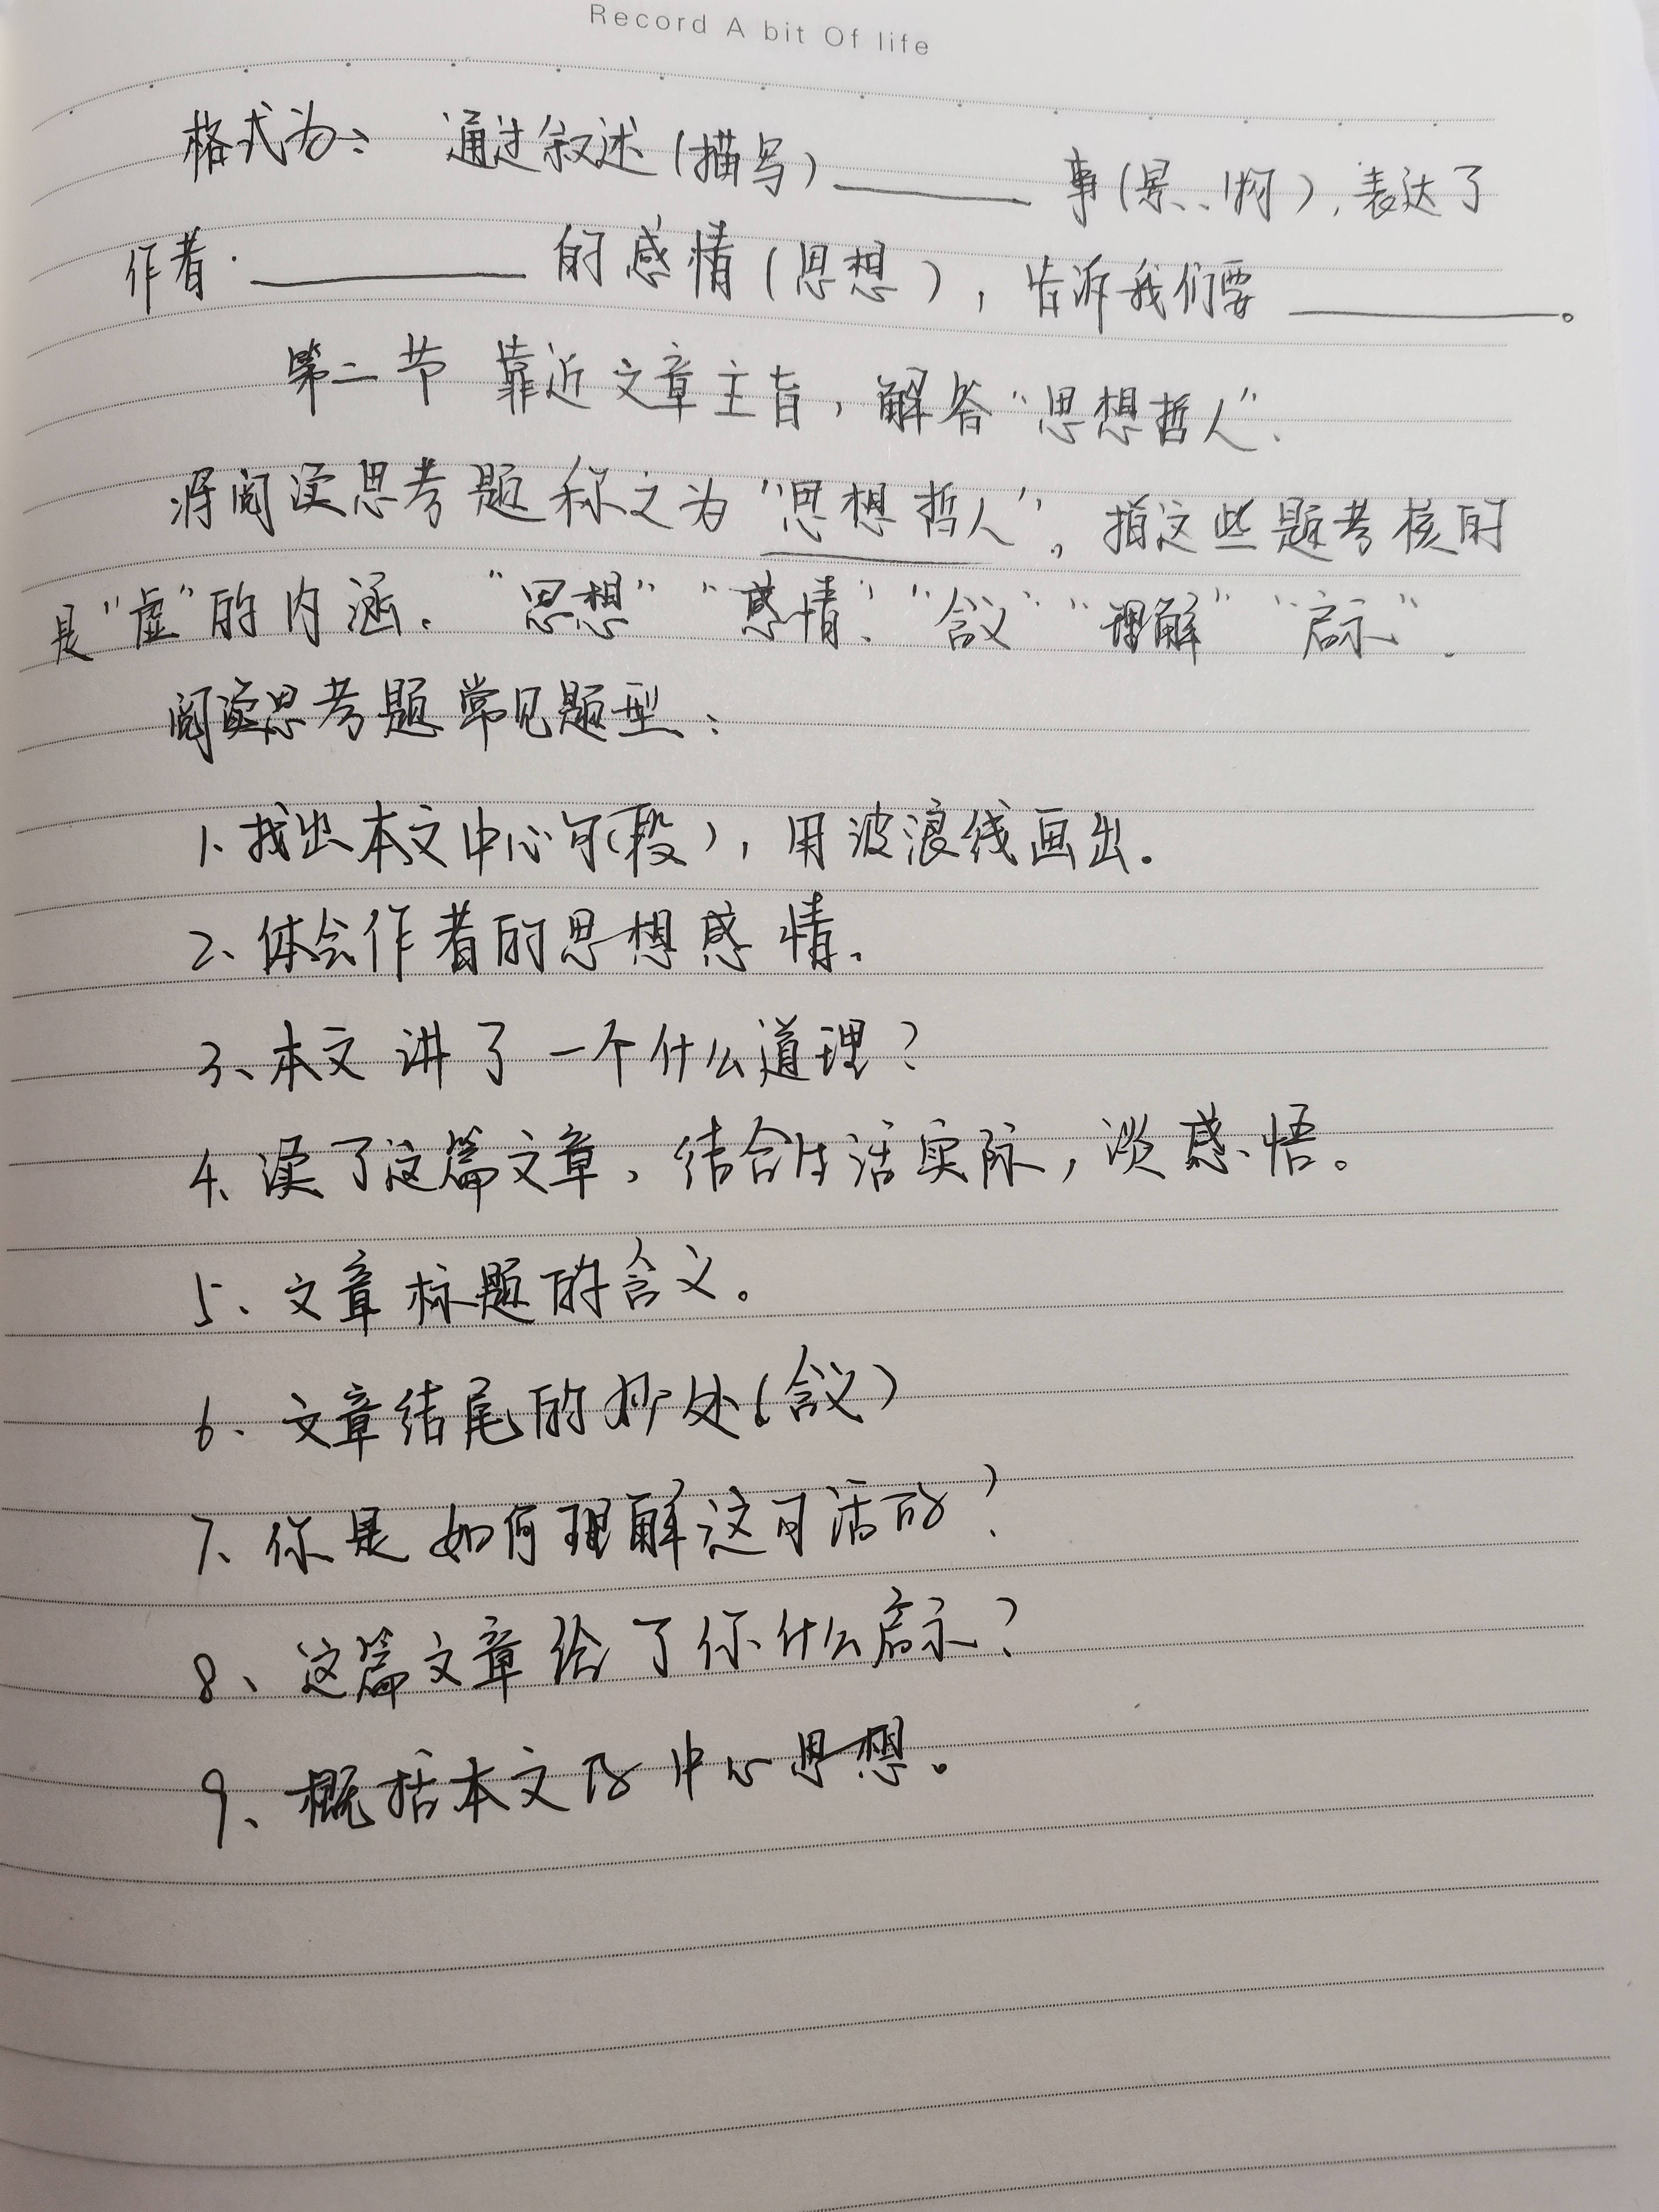 Record A bit Of life
格式为: 通过叙述(描写)________ 事(景、物), 表达了
作者________的感情(思想), 告诉我们要________。
第二节 靠近文章主旨, 解答“思想哲人”.
将阅读思考题称之为“思想哲人”, 指这些题考核的
是“虚”的内涵. “思想”“感情”“含义”“理解”“启示”.
阅读思考题常见题型:
1、找出本文中心句(段), 用波浪线画出.
2、体会作者的思想感情.
3、本文讲了一个什么道理?
4、读了这篇文章, 结合生活实际, 谈感悟。
5、文章标题的含义。
6、文章结尾的妙处(含义)
7、你是如何理解这句话的?
8、这篇文章给了你什么启示?
9、概括本文的中心思想。